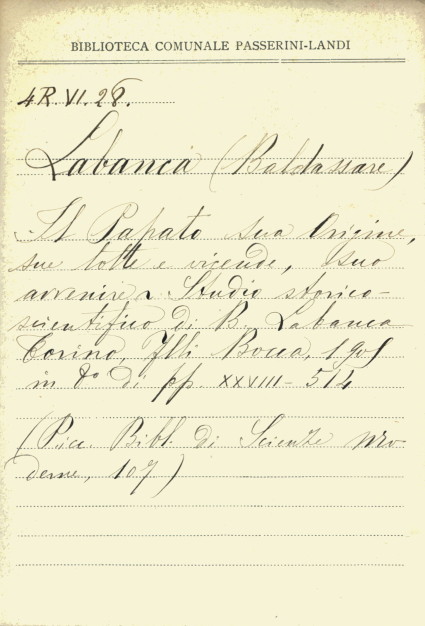 BIBLIOTECA COMUNALE PASSERINI-LANDI
4R.VI.28.
Labanca (Baldassare)
Il Papato sua Origine,
sue lotte e vicende, suo
avvenire Studio storico-
scientifico di B. Labanca
Torino, Flli Bocca, 1905
in 8° di pp. XXVIII-514
(Picc. Bibl. di Scienze mo-
derne, 107)